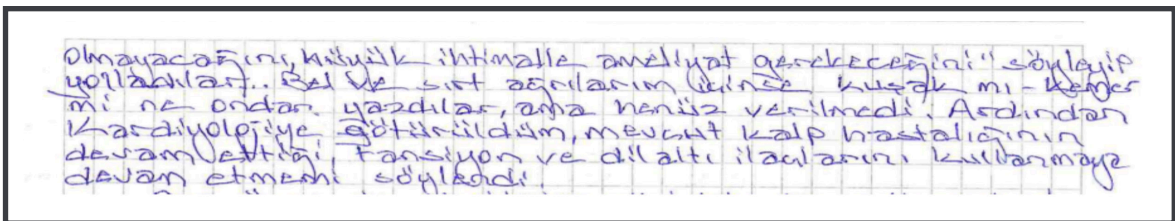 olmayacağını, büyük ihtimalle ameliyat gerekeceğini" söyleyip
yolladılar.. Bel ve sırt ağrılarım içinse kuşak mı - kemer
mi ne ondan yazdılar, ama henüz verilmedi. Ardından
Kardiyolojiye götürüldüm, mevcut kalp hastalığının
devam ettiği, tansiyon ve dilaltı ilaçlarını kullanmaya
devam etmemi söylendi.